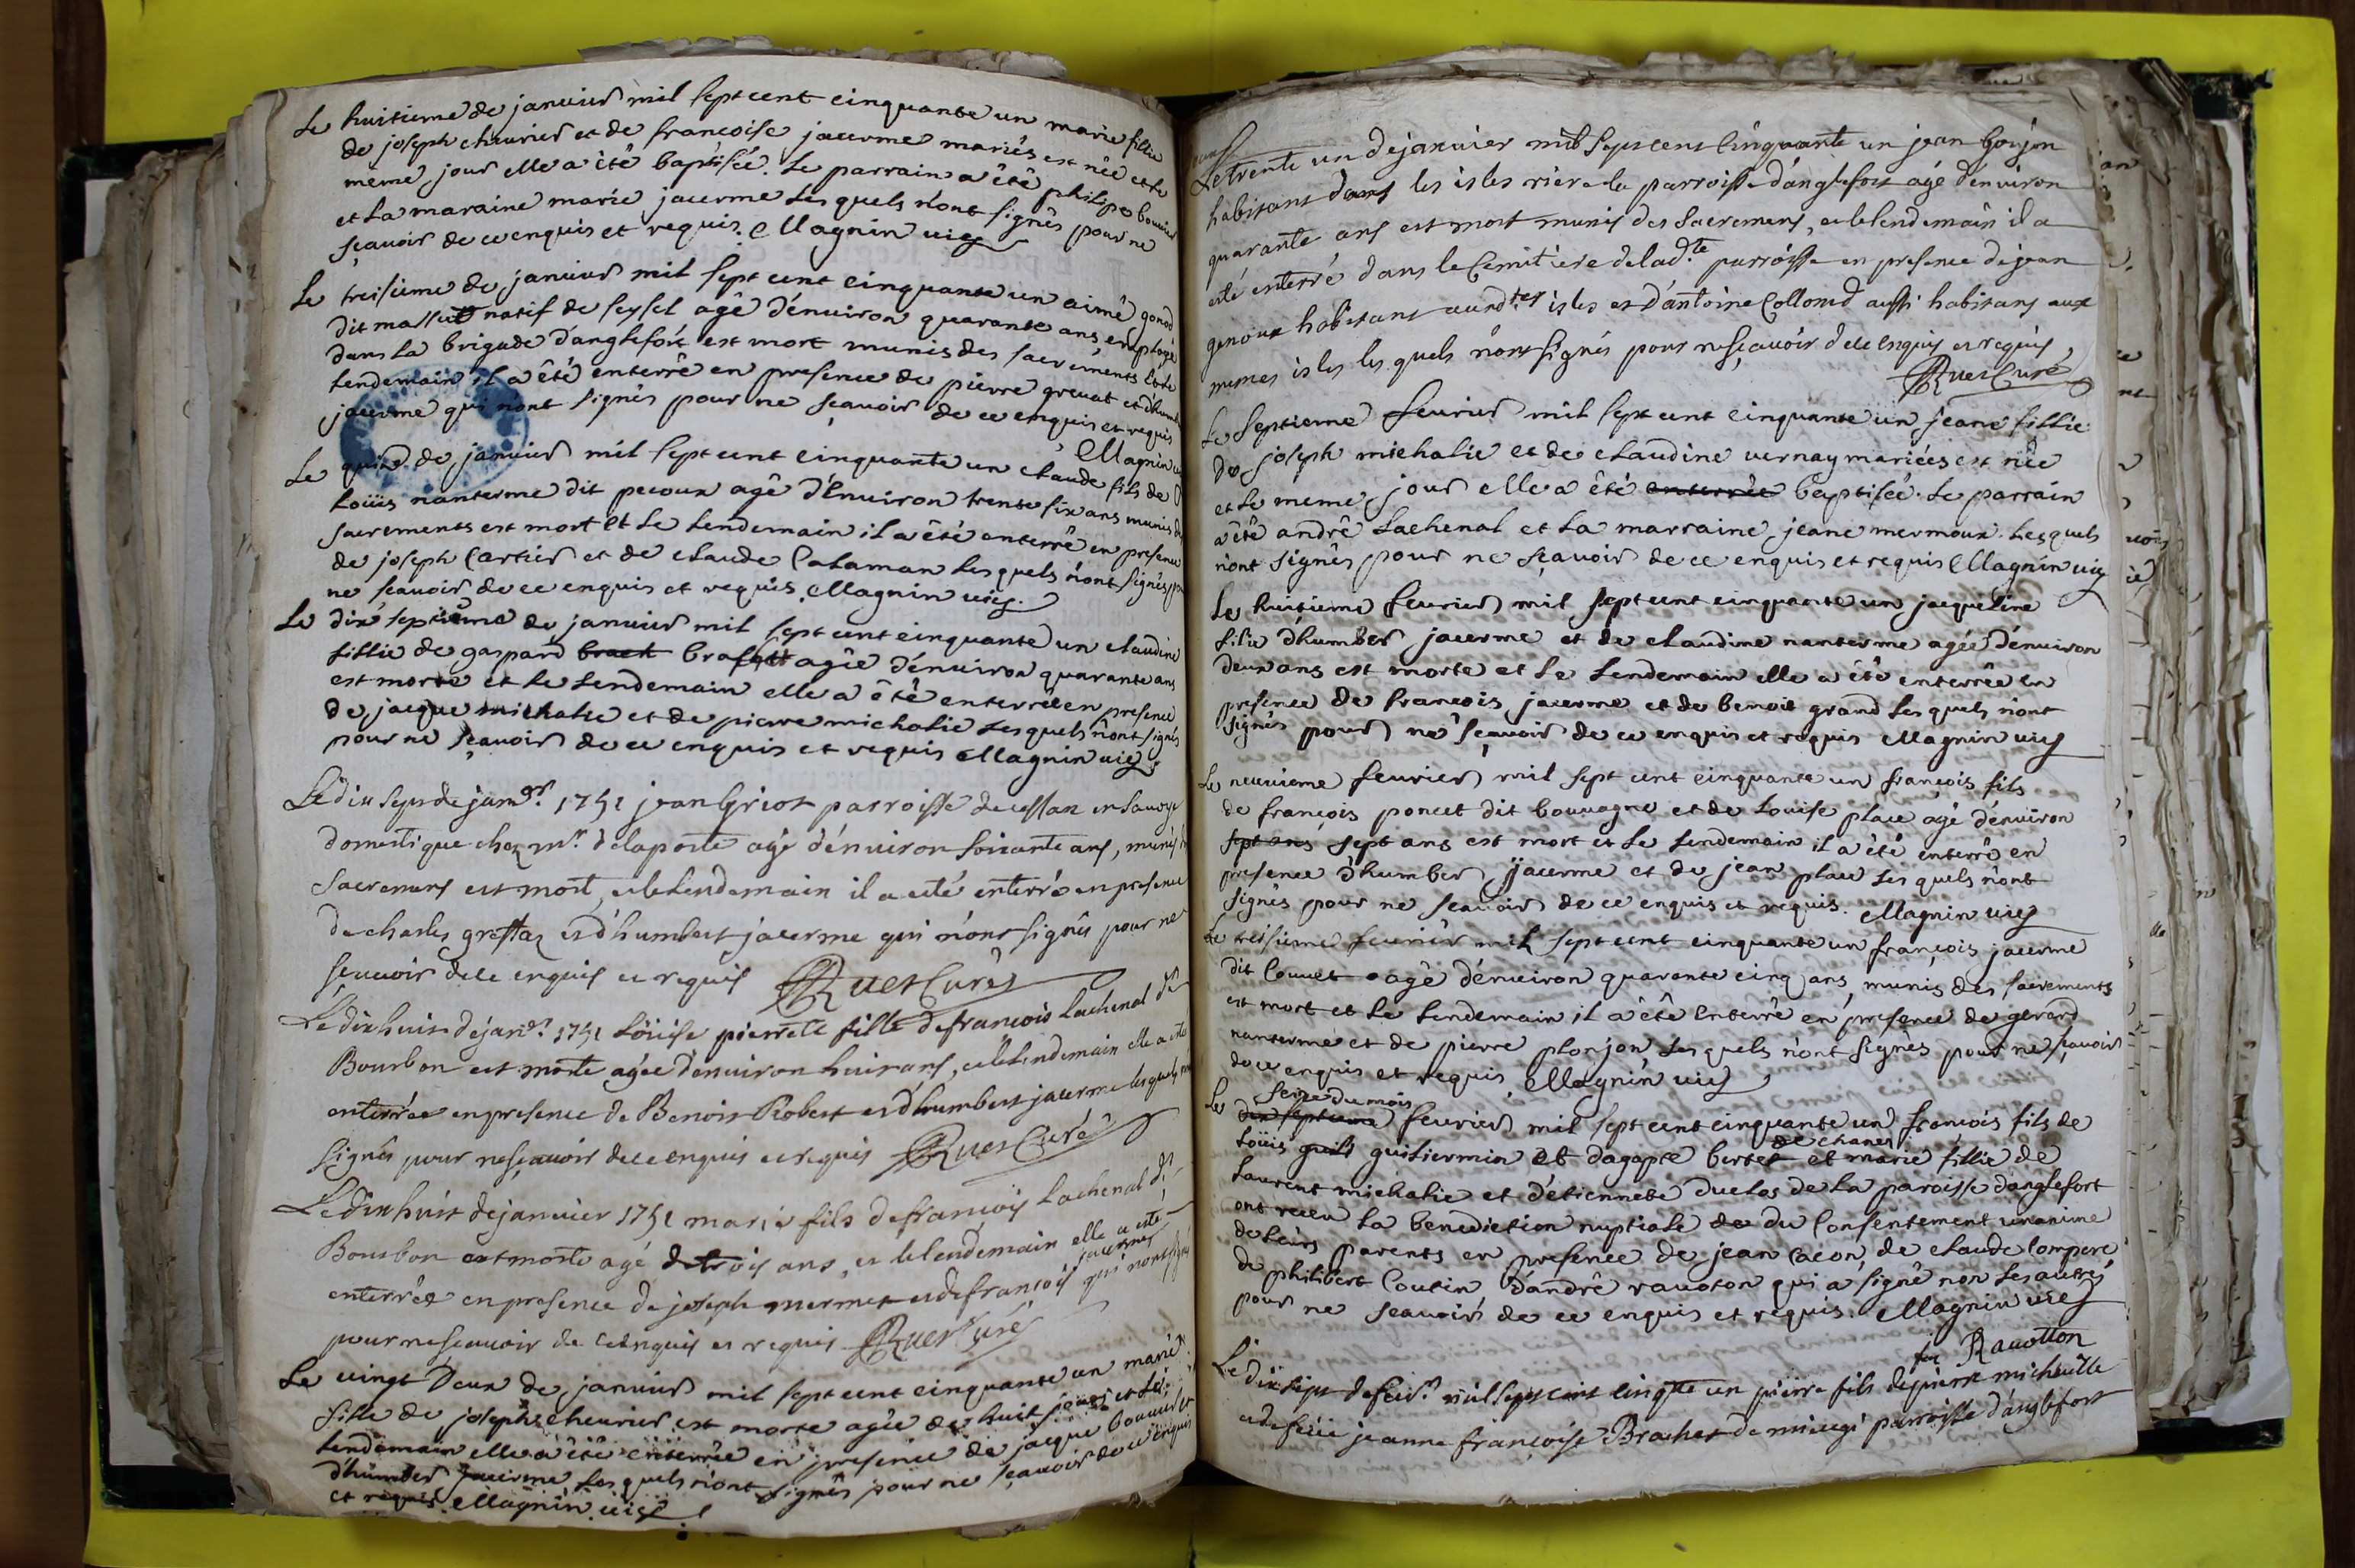 Le huitieme de janvier mil sept cent cinquante un marie fillie
de joseph chevrier et de francoise jacerme mariés est née et le
meme jour elle a été baptisée. Le parrain a été philipe bouvier
et La maraine marie jacerme Les quels n'ont signés pour ne
sçavoir de ce enquis et requis. Magnin vic
Le treisieme de janvier mil sept cent cinquante un aimé gonod
dit massut natif de seyssel agé d'environ quarante ans employé
dans La brigade d'anglefort est mort munis des sacréments et le
Lendemain il a été enterré en presence de pierre grevat et d'humb
jacerme qui n'ont signés pour ne sçavoir de ce enquis et requis
Magnin
Le de janvier mil sept cent cinquante un claude fils de
Loüis nanterme dit pecoux agé d'Environ trente six ans munis d
sacrements est mort et Le Lendemain il a été enterré en presence
de joseph Cartier et de claude Calaman Les quels n'ont signés p
ne sçavoir de ce enquis et requis. Magnin vic.
Le dix septieme de janvier mil sept cent cinquante un claudine
fillie de gaspard brach agée d'environ quarante ans
est morte et Le Lendemain elle a été enterrée en presence
de jacque michalie et de pierre michalie Lesquels n'ont signés
pour ne sçavoir de ce enquis et requis Magnin vic
Le dix sept de janvr. 1751 jean Griot parroisse de en Savoye
domestique chez mr. delaporte agé d'environ soixante ans, munis d
Sacremens est mort, et le Lendemain il a esté enterré en presence
de charles grestaz et d'humbert jacerme qui n'ont signés pour ne
sçavoir de ce enquis et requis Ruet Curé
Le dix huit de janr. 1751 Loüise pierrette fille de francois Lachenal dt
Bourbon est morte agée d'environ huit ans, et le lendemain elle a este
enterrée en presence de Benoit Robert et d'humbert jacerme lesquels n'ont
signés pour ne sçavoir de ce enquis et requis Ruet Curé
Le dix huit de janvier 1751 marie fils de françois Lachenal dt
Bourbon est morte agé de trois ans, et le lendemain elle a este
enterrée en presence de joseph mermet et de francois jacerme qui n'ont signés
pour ne sçavoir de ce enquis et requis Ruet Curé
Le vingt Deux de janvier mil sept cent cinquante un marie
fille de joseph chevrier est morte agée de huit jours et Le
Lendemain elle a été enterrée en presence de jacque bouvier et
d'humber jacerme Les quels n'ont signés pour ne sçavoir de ce enquis
et requis Magnin vic
Le trente un de janvier mil Sept cens Cinquante un jean Goujon
habitant dans les isles riere la parroisse d'anglefort agé d'environ
quarante ans est mort munis des Sacremens, et le lendemain il a
esté enterré dans le Cemitiere de lad.te parroisse en presence de jean
genoux habitant aux d.tes isles et d'antoine Collomd aussi habitans aux
mêmes isles les quels n'ont signés pour ne sçavoir de ce enquis et requis,
Ruet Curé
Le Septieme fevrier mil sept cent cinquante un jeane fillie
de joseph michalie et de claudine vernay mariées est née
et Le meme jour elle a été enterrée baptisée. Le parrain
a été andré Lachenal et La marraine jeane mermoux. Lesquels
n'ont signés pour ne sçavoir de ce enquis et requis Magnin vic
Le huitieme fevrier mil sept cent cinquante un jacqueline
filie d'humber jacerme et de claudine nanterme agée d'environ
deux ans est morte et Le Lendemain elle a été enterrée en
presence de francois jacerme et de benoit grand Les quels n'ont
signés pour ne sçavoir de ce enquis et requis Magnin vic
Le neuvieme fevrier mil sept cent cinquante un françois fils
de françois poncet dit bouvagne et de Louise place agé d'environ
sept ans sept ans est mort et Le Lendemain il a été enterré en
presence d'humber jacerme et de jean place Les quels n'ont
signés pour ne sçavoir de ce enquis et requis. Magnin vic
Le treisieme fevrier mil sept cent cinquante un françois jacerme
dit Couvet agé d'environ quarante cinq ans, munis des sacrements
est mort et Le Lendemain il a été enterré en presence de gerard
nanterme et de pierre plonjon Les quels n'ont signés pour ne sçavoir
de ce enquis et requis Magnin vic
seize du mois
Le dix septieme fevrier mil sept cent cinquante un francois fils de
de chanes
Loüis guili guiliermin et d'agapte bertet et marie fillie de
Laurent michalie et d'étiennete duclos de La paroisse d'anglefort
ont receu La benediction nuptiale de du Consentement unanime
de Leurs parents en presence de jean Cacon, de claude Compere
de philibert Coutin, d'andré ravoton qui a signé non Les autres
pour ne sçavoir de ce enquis et requis. Magnin vic
Ravotton
Le dix sept de fevr. mil sept cent cinqte un pierre fils de pierre michaille
et de feüe jeanne françoise Brachet de mivegi parroisse d'anglefort